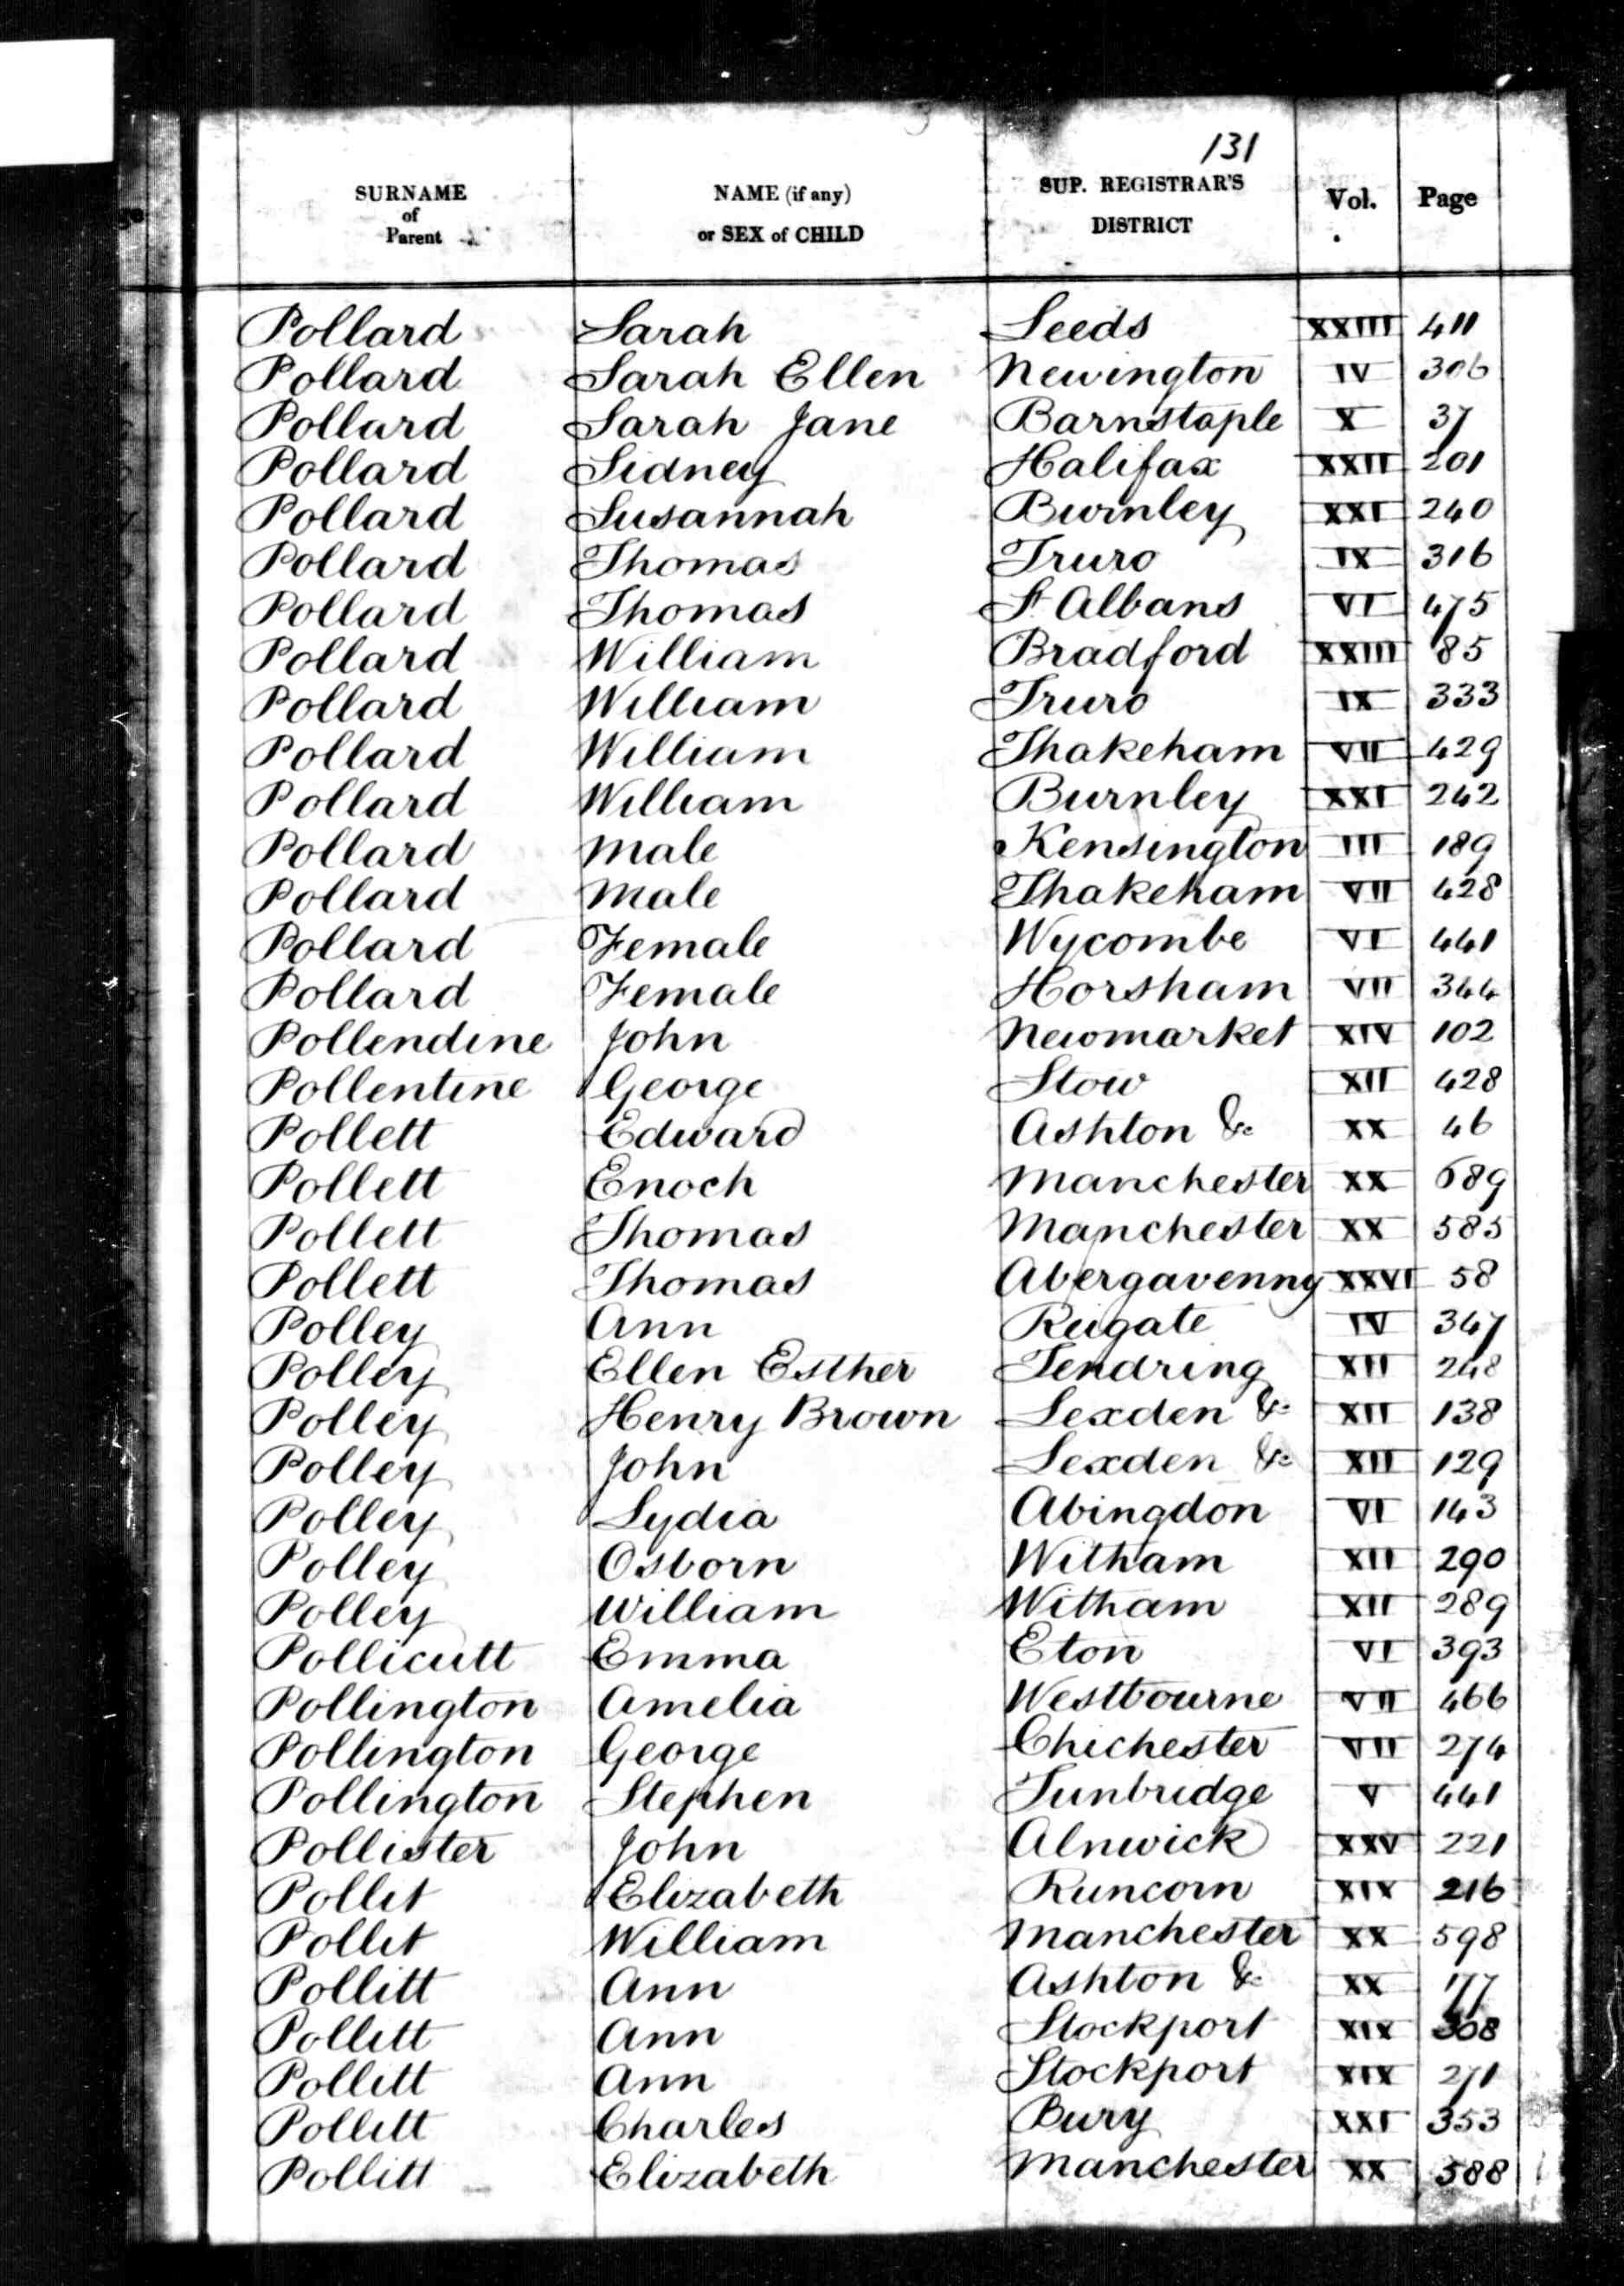 131
SURNAME of Parent NAME (if any) or SEX of CHILD SUP. REGISTRAR'S DISTRICT Vol. Page
Pollard Sarah Leeds XXIII 411
Pollard Sarah Ellen Newington IV 306
Pollard Sarah Jane Barnstaple X 37
Pollard Sidney Halifax XXII 201
Pollard Susannah Burnley XXI 240
Pollard Thomas Truro IX 316
Pollard Thomas St Albans VI 475
Pollard William Bradford XXIII 85
Pollard William Truro IX 333
Pollard William Thakeham VII 429
Pollard William Burnley XXI 242
Pollard Male Kensington III 189
Pollard Male Thakeham VII 428
Pollard Female Wycombe VI 441
Pollard Female Horsham VII 344
Pollendine John Newmarket XIV 102
Pollentine George Stow XII 428
Pollett Edward Ashton &c XX 46
Pollett Enoch Manchester XX 689
Pollett Thomas Manchester XX 585
Pollett Thomas Abergavenny XXVI 58
Polley Ann Reigate IV 347
Polley Ellen Esther Tendring XII 248
Polley Henry Brown Lexden &c XII 138
Polley John Lexden &c XII 129
Polley Lydia Abingdon VI 143
Polley Osborn Witham XII 290
Polley William Witham XII 289
Pollicutt Emma Eton VI 393
Pollington Amelia Westbourne VII 466
Pollington George Chichester VII 274
Pollington Stephen Tunbridge V 441
Pollister John Alnwick XXV 221
Pollit Elizabeth Runcorn XIX 216
Pollit William Manchester XX 598
Pollitt Ann Ashton &c XX 177
Pollitt Ann Stockport XIX 308
Pollitt Ann Stockport XIX 271
Pollitt Charles Bury XXI 353
Pollitt Elizabeth Manchester XX 588